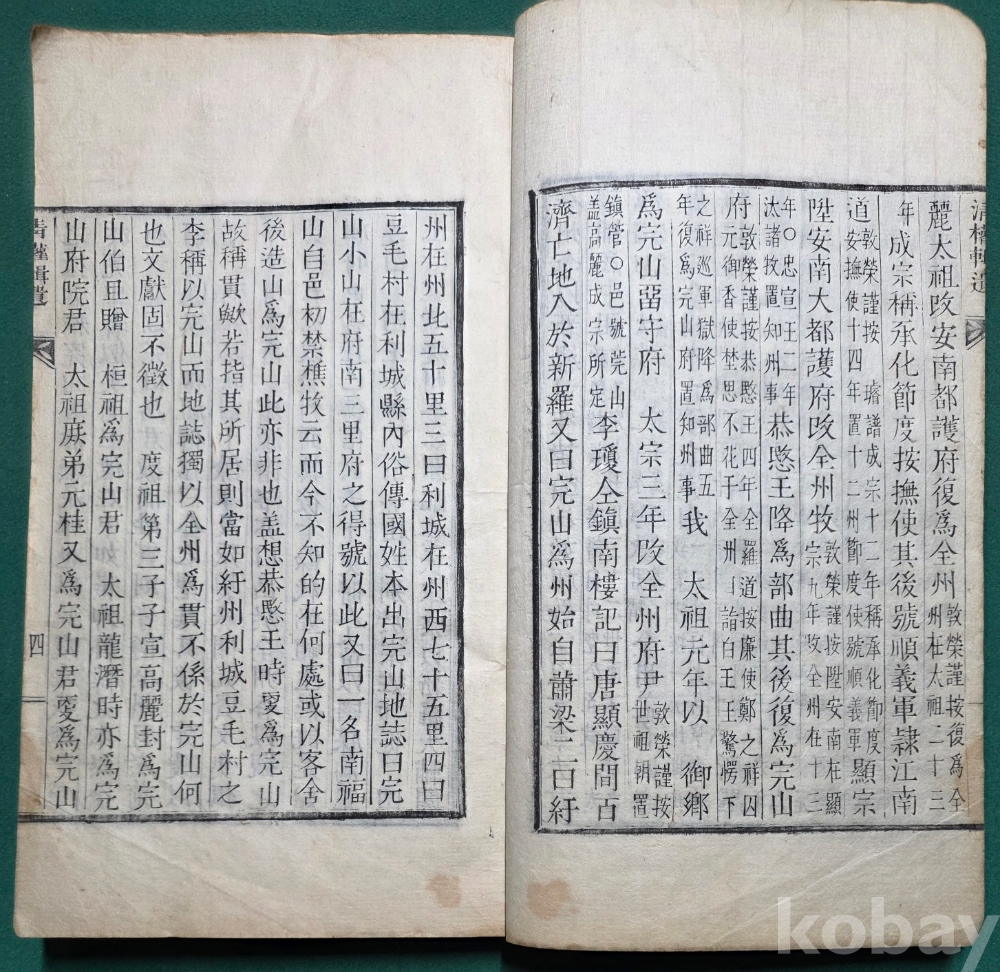 麗太祖改安南都護府復爲全州敦榮謹按復爲全
州在太祖二十三
年成宗稱承化節度按撫使其後號順義軍隷江南
道敦榮謹按 璿譜成宗十二年稱承化節度
安撫使十四年置十二州節度使號順義軍顯宗
陞安南大都護府改全州牧敦榮謹按陞安南在顯
宗九年改全州在十三
年○忠宣王二年
汰諸牧置知州事恭愍王降爲部曲其後復爲完山
府敦榮謹按恭愍王四年全羅道按廉使鄭之祥囚
元御香使埜思不花于全州諳白王王驚愕下
之祥巡軍獄降爲部曲五
年復爲完山府置知州事我 太祖元年以 御鄕
爲完山畱守府 太宗三年改全州府尹敦榮謹按
世祖朝置
鎭管○邑號莞山
盖高麗成宗所定李瓊仝鎭南樓記曰唐顯慶間百
濟亡地入於新羅又曰完山爲州始自蕭梁二曰紆
州在州北五十里三曰利城在州西七十五里四曰
豆毛村在利城縣內俗傳國姓本出完山地誌曰完
山小山在府南三里府之得號以此又曰一名南福
山自邑初禁樵牧云而今不知的在何處或以客舍
後造山爲完山此亦非也盖想恭愍王時爰爲完山
故稱貫歟若指其所居則當如紆州利城豆毛村之
李稱以完山而地誌獨以全州爲貫不係於完山何
也文獻固不徵也 度祖第三子子宣高麗封爲完
山伯且贈 桓祖爲完山君 太祖龍潛時亦爲完
山府院君 太祖庶弟元桂又爲完山君爰爲完山
四
kobay